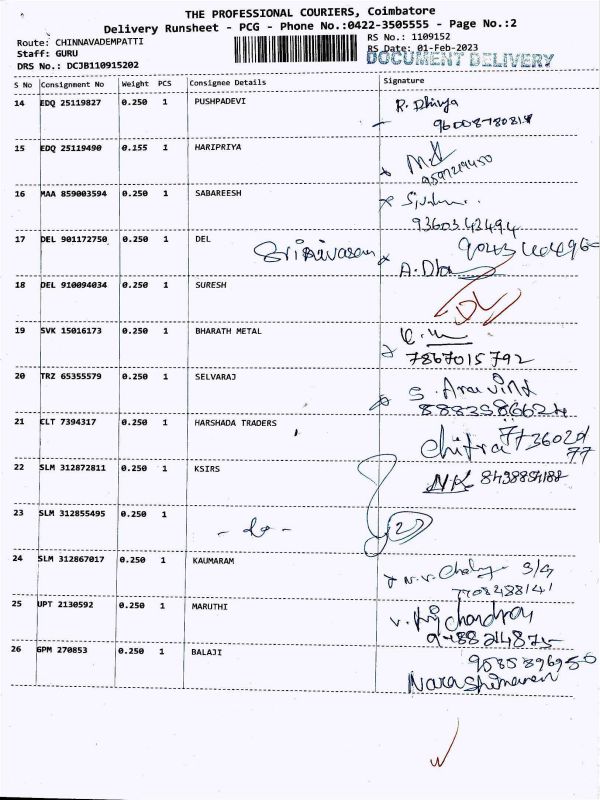 THE PROFESSIONAL COURIERS, Coimbatore
Delivery Runsheet - PCG - Phone No.:0422-3505555 - Page No.:2
Route: CHINNAVADEMPATTI RS No.: 1109152
Staff: GURU RS Date: 01-Feb-2023
DOCUMENT DELIVERY
DRS No.: DCJB110915202
S No Consignment No Weight PCS Consignee Details Signature
14 EDQ 25119827 0.250 1 PUSHPADEVI R. Dhivya
15 EDQ 25119490 0.155 1 HARIPRIYA
16 MAA 859003594 0.250 1 SABAREESH
9360342494
17 DEL 901172750 0.250 1 DEL Srinivasan
18 DEL 910094034 0.250 1 SURESH
19 SVK 15016173 0.250 1 BHARATH METAL
7867015792
20 TRZ 65355579 0.250 1 SELVARAJ S. Aravind
21 CLT 7394317 0.250 1 HARSHADA TRADERS Chitra
22 SLM 312872811 0.250 1 KSIRS NK
23 SLM 312855495 0.250 1 - do - 2
24 SLM 312867017 0.250 1 KAUMARAM
25 UPT 2130592 0.250 1 MARUTHI
26 GPM 270853 0.250 1 BALAJI